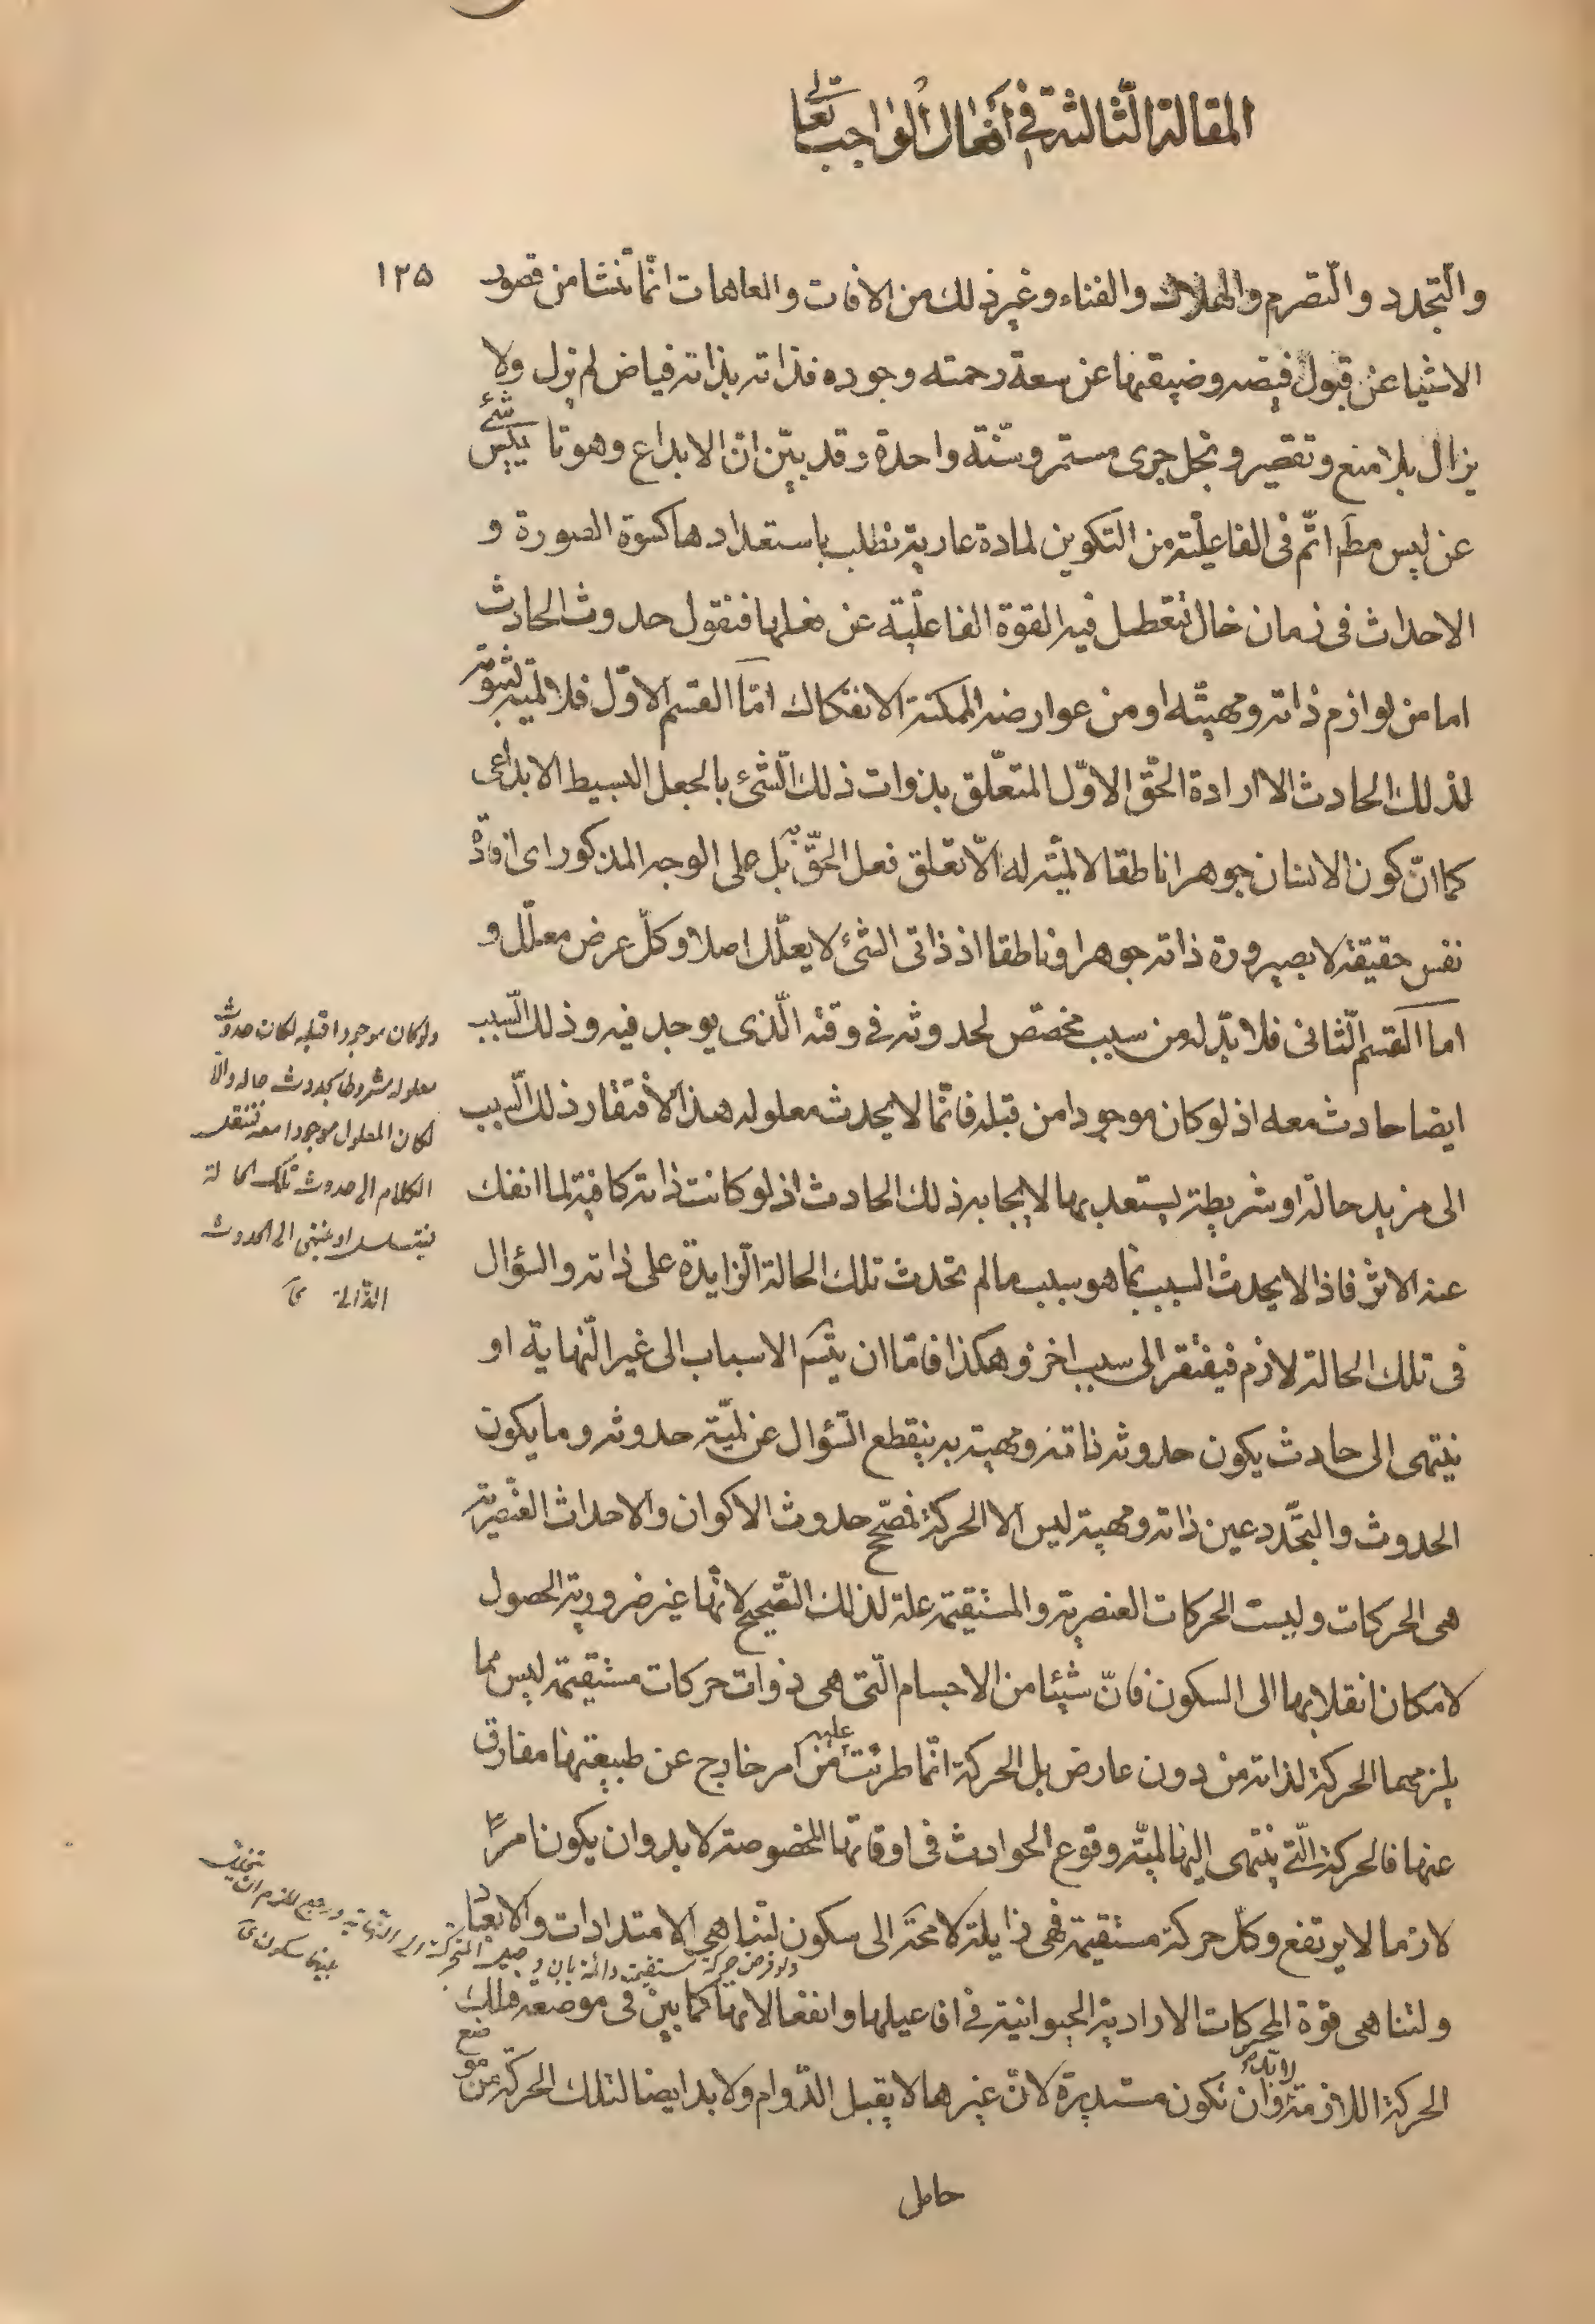 المقالة الثالثة في أفعال الواجب تعالى
١٢۵
والتجدد والتصرم والهلاك والفناء وغير ذلك من الافات والعاهات انما تنشا من قصور
الاشيا عن قبول فيضه وضيقها عن سعة رحمته وجوده فذاته بذاته فياض لم يزل ولا
يزال بلا منع وتقصير وبخل جرى مستمر وسنة واحدة وقد بين ان الابداع وهو تاييس شئ
عن ليس مط اتم فى الفاعلية من التكوين لمادة عارية تطلب باستعدادها كسوة الصورة و
الاحداث فى زمان خال تتعطل فيه القوة الفاعلية عن فعلها فنقول حدوث الحادث
اما من لوازم ذاته ومهيته او من عوارضه الممكنة الانفكاك امّا القسم الاوّل فلا لمية لثبوته
لذلك الحادث الا ارادة الحق الاوّل المتعلق بذوات ذلك الشئ بالجعل البسيط الابداعى
كما ان كون الانسان جوهرا ناطقا لا لمية له الّا تعلق فعل الحقّ به بل على الوجه المذكور اى افادة
نفس حقيقته لا بصيرورة ذاته جوهرا وناطقا اذ ذاتى الشئ لا يعلّل اصلا وكلّ عرض معلّل و
اما القسم الثانى فلا بدّ له من سبب مخصص لحدوثه فى وقته الّذى يوجد فيه وذلك السبب
ايضا حادث معه اذ لو كان موجودا من قبله فانما لا يحدث معلوله هذا لافتقار ذلك السبب
الى مزيد حالة او شريطة يستعد بها لايجابه ذلك الحادث اذ لو كانت ذاته كافية لما انفك
عنه الاثر فاذا لا يحدث السبب بما هو سبب ما لم تحدث تلك الحالة الزايدة على ذاته والسؤال
فى تلك الحالة لازم فيفتقر الى سبب اخر وهكذا فاما ان يتسم الاسباب الى غير النهاية او
ينتهى الى حادث يكون حدوثه ذاته ومهيته به ينقطع السؤال عن لمية حدوثه وما يكون
الحدوث والتجدد عين ذاته ومهيته ليس الا الحركة فمصحح حدوث الاكوان والاحداث العنصرية
هى الحركات وليست الحركات العنصرية والمستقيمة علة لذلك التصحيح لانها غير ضرورية الحصول
لامكان انقلابها الى السكون فانّ شيئا من الاجسام الّتى هى ذوات حركات مستقيمة ليس مما
يلزمها الحركة لذاته من دون عارض بل الحركة انما طرئت عليه من امر خارج عن طبيعتها مفارق
عنها فالحركة الّتى ينتهى اليها لمية وقوع الحوادث فى اوقاتها المخصوصة لا بد وان يكون امرا
لازما لا يرتفع وكل حركة مستقيمة فهى زايلة لا محة الى سكون لتناهى الامتدادات والابعاد
ولتناهى قوة المحركات الارادية الحيوانية فى افاعيلها وانفعالاتها كما بين فى موضعه فتلك
الحركة اللازمة لا بد وان تكون مستديرة لان غيرها لا يقبل الدوام ولا بد ايضا لتلك الحركة من موضع
حامل
ولو كان موجودا قبله لكان حدوث
معلوله مشروطا بحدوث حالة والا
لكان المعلول موجودا معه فننقل
الكلام الى حدوث تلك الحالة
فيتسلسل او ينتهى الى الحدوث
ولو فرض حركة مستقيمة دائمة بان
بينها سكون